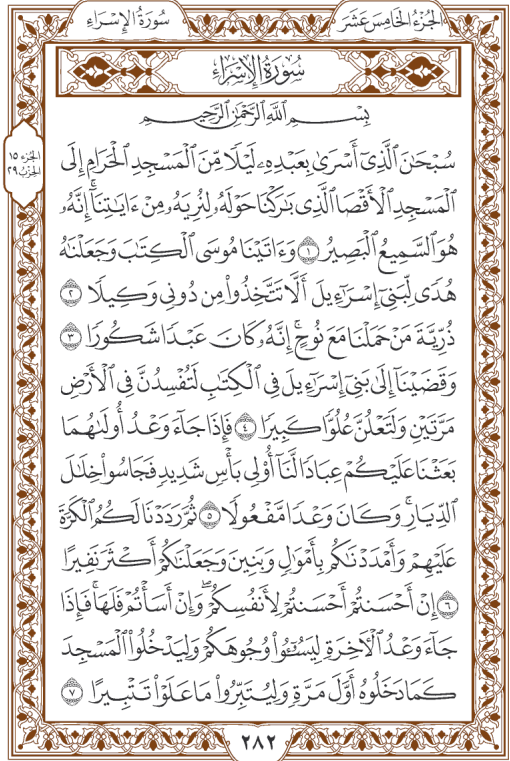 سُورَةُ الإِسْرَاءِ
الجُزْءُ الخَامِسَ عَشَرَ
سُورَةُ الإِسْرَاءِ
بِسْمِ ٱللَّهِ ٱلرَّحْمَٰنِ ٱلرَّحِيمِ
الجزء ١٥
الحزب ٢٩
سُبْحَٰنَ ٱلَّذِىٓ أَسْرَىٰ بِعَبْدِهِۦ لَيْلًا مِّنَ ٱلْمَسْجِدِ ٱلْحَرَامِ إِلَى
ٱلْمَسْجِدِ ٱلْأَقْصَا ٱلَّذِى بَٰرَكْنَا حَوْلَهُۥ لِنُرِيَهُۥ مِنْ ءَايَٰتِنَآ ۚ إِنَّهُۥ
هُوَ ٱلسَّمِيعُ ٱلْبَصِيرُ ١ وَءَاتَيْنَا مُوسَى ٱلْكِتَٰبَ وَجَعَلْنَٰهُ
هُدًى لِّبَنِىٓ إِسْرَٰٓءِيلَ أَلَّا تَتَّخِذُوا۟ مِن دُونِى وَكِيلًا ٢
ذُرِّيَّةَ مَنْ حَمَلْنَا مَعَ نُوحٍ ۚ إِنَّهُۥ كَانَ عَبْدًا شَكُورًا ٣
وَقَضَيْنَآ إِلَىٰ بَنِىٓ إِسْرَٰٓءِيلَ فِى ٱلْكِتَٰبِ لَتُفْسِدُنَّ فِى ٱلْأَرْضِ
مَرَّتَيْنِ وَلَتَعْلُنَّ عُلُوًّا كَبِيرًا ٤ فَإِذَا جَآءَ وَعْدُ أُولَىٰهُمَا
بَعَثْنَا عَلَيْكُمْ عِبَادًا لَّنَآ أُو۟لِى بَأْسٍ شَدِيدٍ فَجَاسُوا۟ خِلَٰلَ
ٱلدِّيَارِ ۚ وَكَانَ وَعْدًا مَّفْعُولًا ٥ ثُمَّ رَدَدْنَا لَكُمُ ٱلْكَرَّةَ
عَلَيْهِمْ وَأَمْدَدْنَٰكُم بِأَمْوَٰلٍ وَبَنِينَ وَجَعَلْنَٰكُمْ أَكْثَرَ نَفِيرًا
٦ إِنْ أَحْسَنتُمْ أَحْسَنتُمْ لِأَنفُسِكُمْ ۖ وَإِنْ أَسَأْتُمْ فَلَهَا ۚ فَإِذَا
جَآءَ وَعْدُ ٱلْءَاخِرَةِ لِيَسُۥٓـُٔوا۟ وُجُوهَكُمْ وَلِيَدْخُلُوا۟ ٱلْمَسْجِدَ
كَمَا دَخَلُوهُ أَوَّلَ مَرَّةٍ وَلِيُتَبِّرُوا۟ مَا عَلَوْا۟ تَتْبِيرًا ٧
٢٨٢